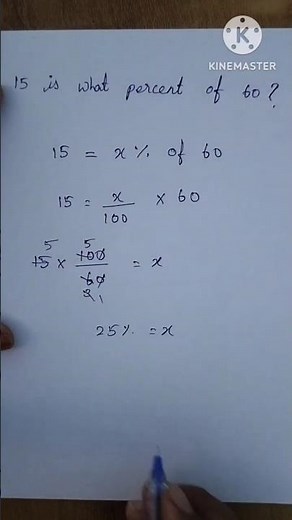 KINEMASTER
15 is what percent of 60?
15 = x% of 60
15 = x/100 × 60
15 × 100/60 = x
5 5
3 1
25% = x